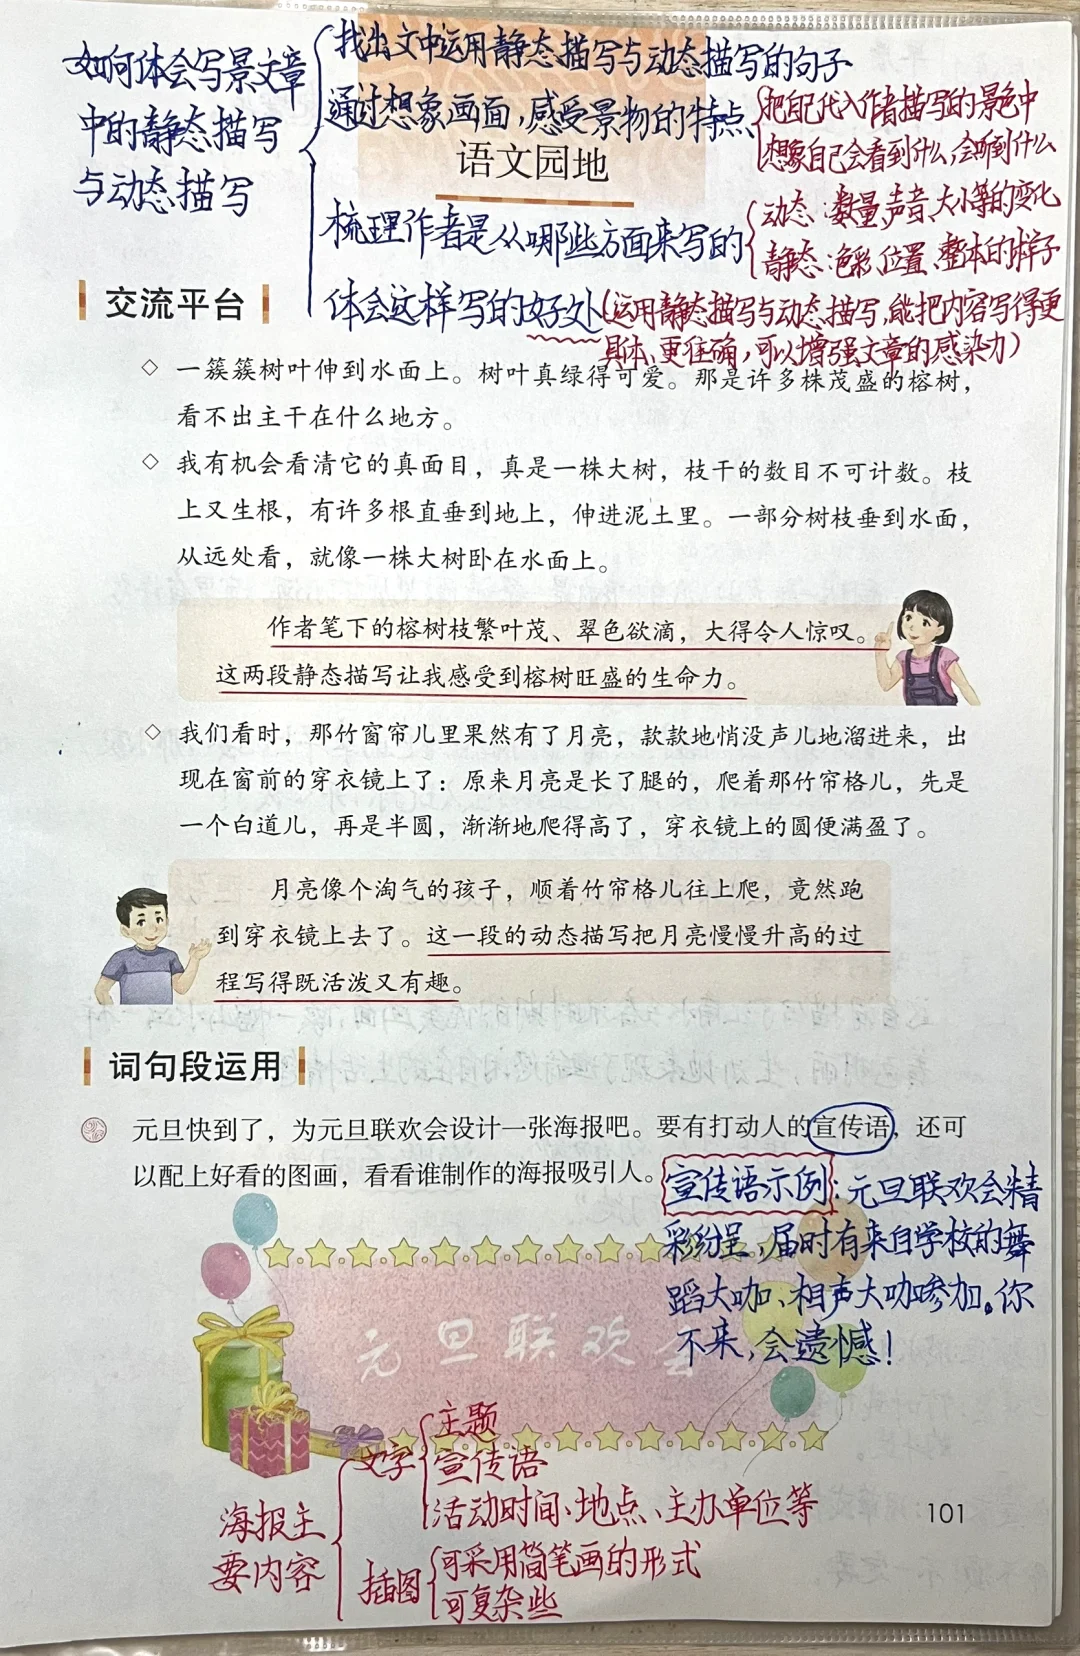 如何体会写景文章
中的静态描写
与动态描写
找出文中运用静态描写与动态描写的句子
通过想象画面,感受景物的特点
把自己代入作者描写的景色中
想象自己会看到什么,会听到什么
语文园地
梳理作者是从哪些方面来写的
动态:数量、声音、大小等的变化
静态:色彩、位置、整体的样子
体会这样写的好处(运用静态描写与动态描写,能把内容写得更
具体、更准确,可以增强文章的感染力)
交流平台
◇ 一簇簇树叶伸到水面上。树叶真绿得可爱。那是许多株茂盛的榕树,
看不出主干在什么地方。
◇ 我有机会看清它的真面目,真是一株大树,枝干的数目不可计数。枝
上又生根,有许多根直垂到地上,伸进泥土里。一部分树枝垂到水面,
从远处看,就像一株大树卧在水面上。
作者笔下的榕树枝繁叶茂、翠色欲滴,大得令人惊叹。
这两段静态描写让我感受到榕树旺盛的生命力。
◇ 我们看时,那竹窗帘儿里果然有了月亮,款款地悄没声儿地溜进来,出
现在窗前的穿衣镜上了:原来月亮是长了腿的,爬着那竹帘格儿,先是
一个白道儿,再是半圆,渐渐地爬得高了,穿衣镜上的圆便满盈了。
月亮像个淘气的孩子,顺着竹帘格儿往上爬,竟然跑
到穿衣镜上去了。这一段的动态描写把月亮慢慢升高的过
程写得既活泼又有趣。
词句段运用
元旦快到了,为元旦联欢会设计一张海报吧。要有打动人的宣传语,还可
以配上好看的图画,看看谁制作的海报吸引人。
宣传语示例:元旦联欢会精
彩纷呈,届时有来自学校的舞
蹈大咖、相声大咖参加。你
不来,会遗憾!
元旦联欢会
海报主
要内容
文字
主题
宣传语
活动时间、地点、主办单位等
插图
可采用简笔画的形式
可复杂些
101